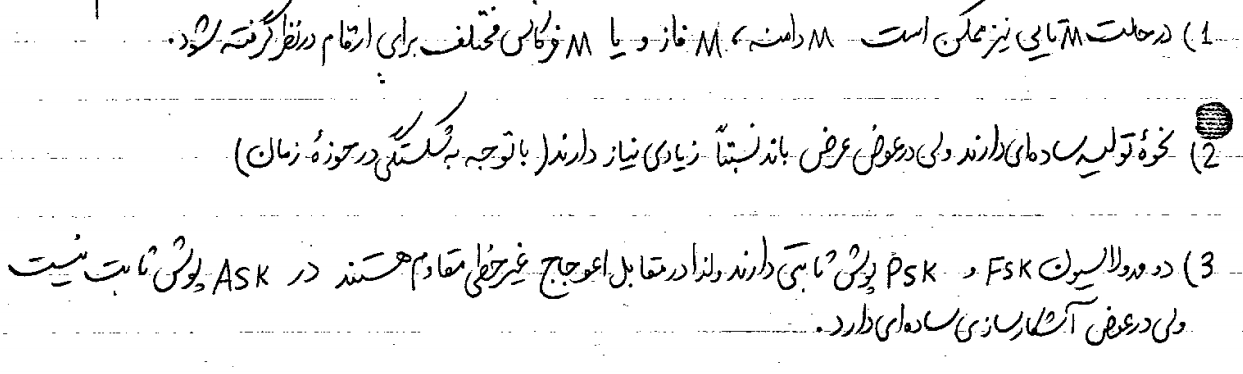 1) در حالت M تایی نیز ممکن است M دامنه، M فاز و یا M فرکانس مختلف برای ارقام در نظر گرفته شود.
2) نحوهٔ تولید ساده‌ای دارند ولی در عوض عرض باند نسبتاً زیادی نیاز دارند (با توجه به شکستگی در حوزهٔ زمان)
3) دو مدولاسیون FSK و PSK پوش ثابتی دارند ولذا در مقابل اعوجاج غیرخطی مقاوم هستند در ASK پوش ثابت نیست
ولی در عوض آشکارسازی ساده‌ای دارد.